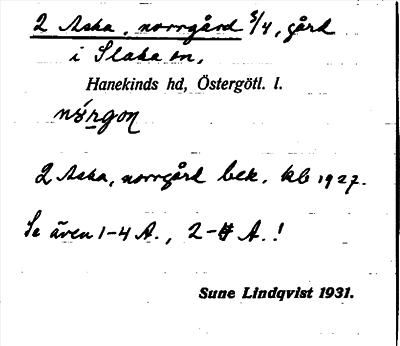 2 Aska, norrgård 3/4, gård
i Slaka sn,
Hanekinds hd, Östergötl. l.
nørgon
2 Aska, norrgård bek. kb 1927.
Se även 1-4 A., 2- A.!
Sune Lindqvist 1931.